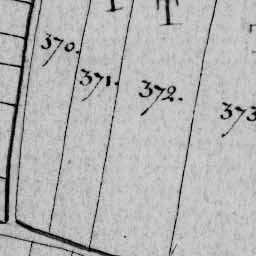 T T
370.
371.
372.
373